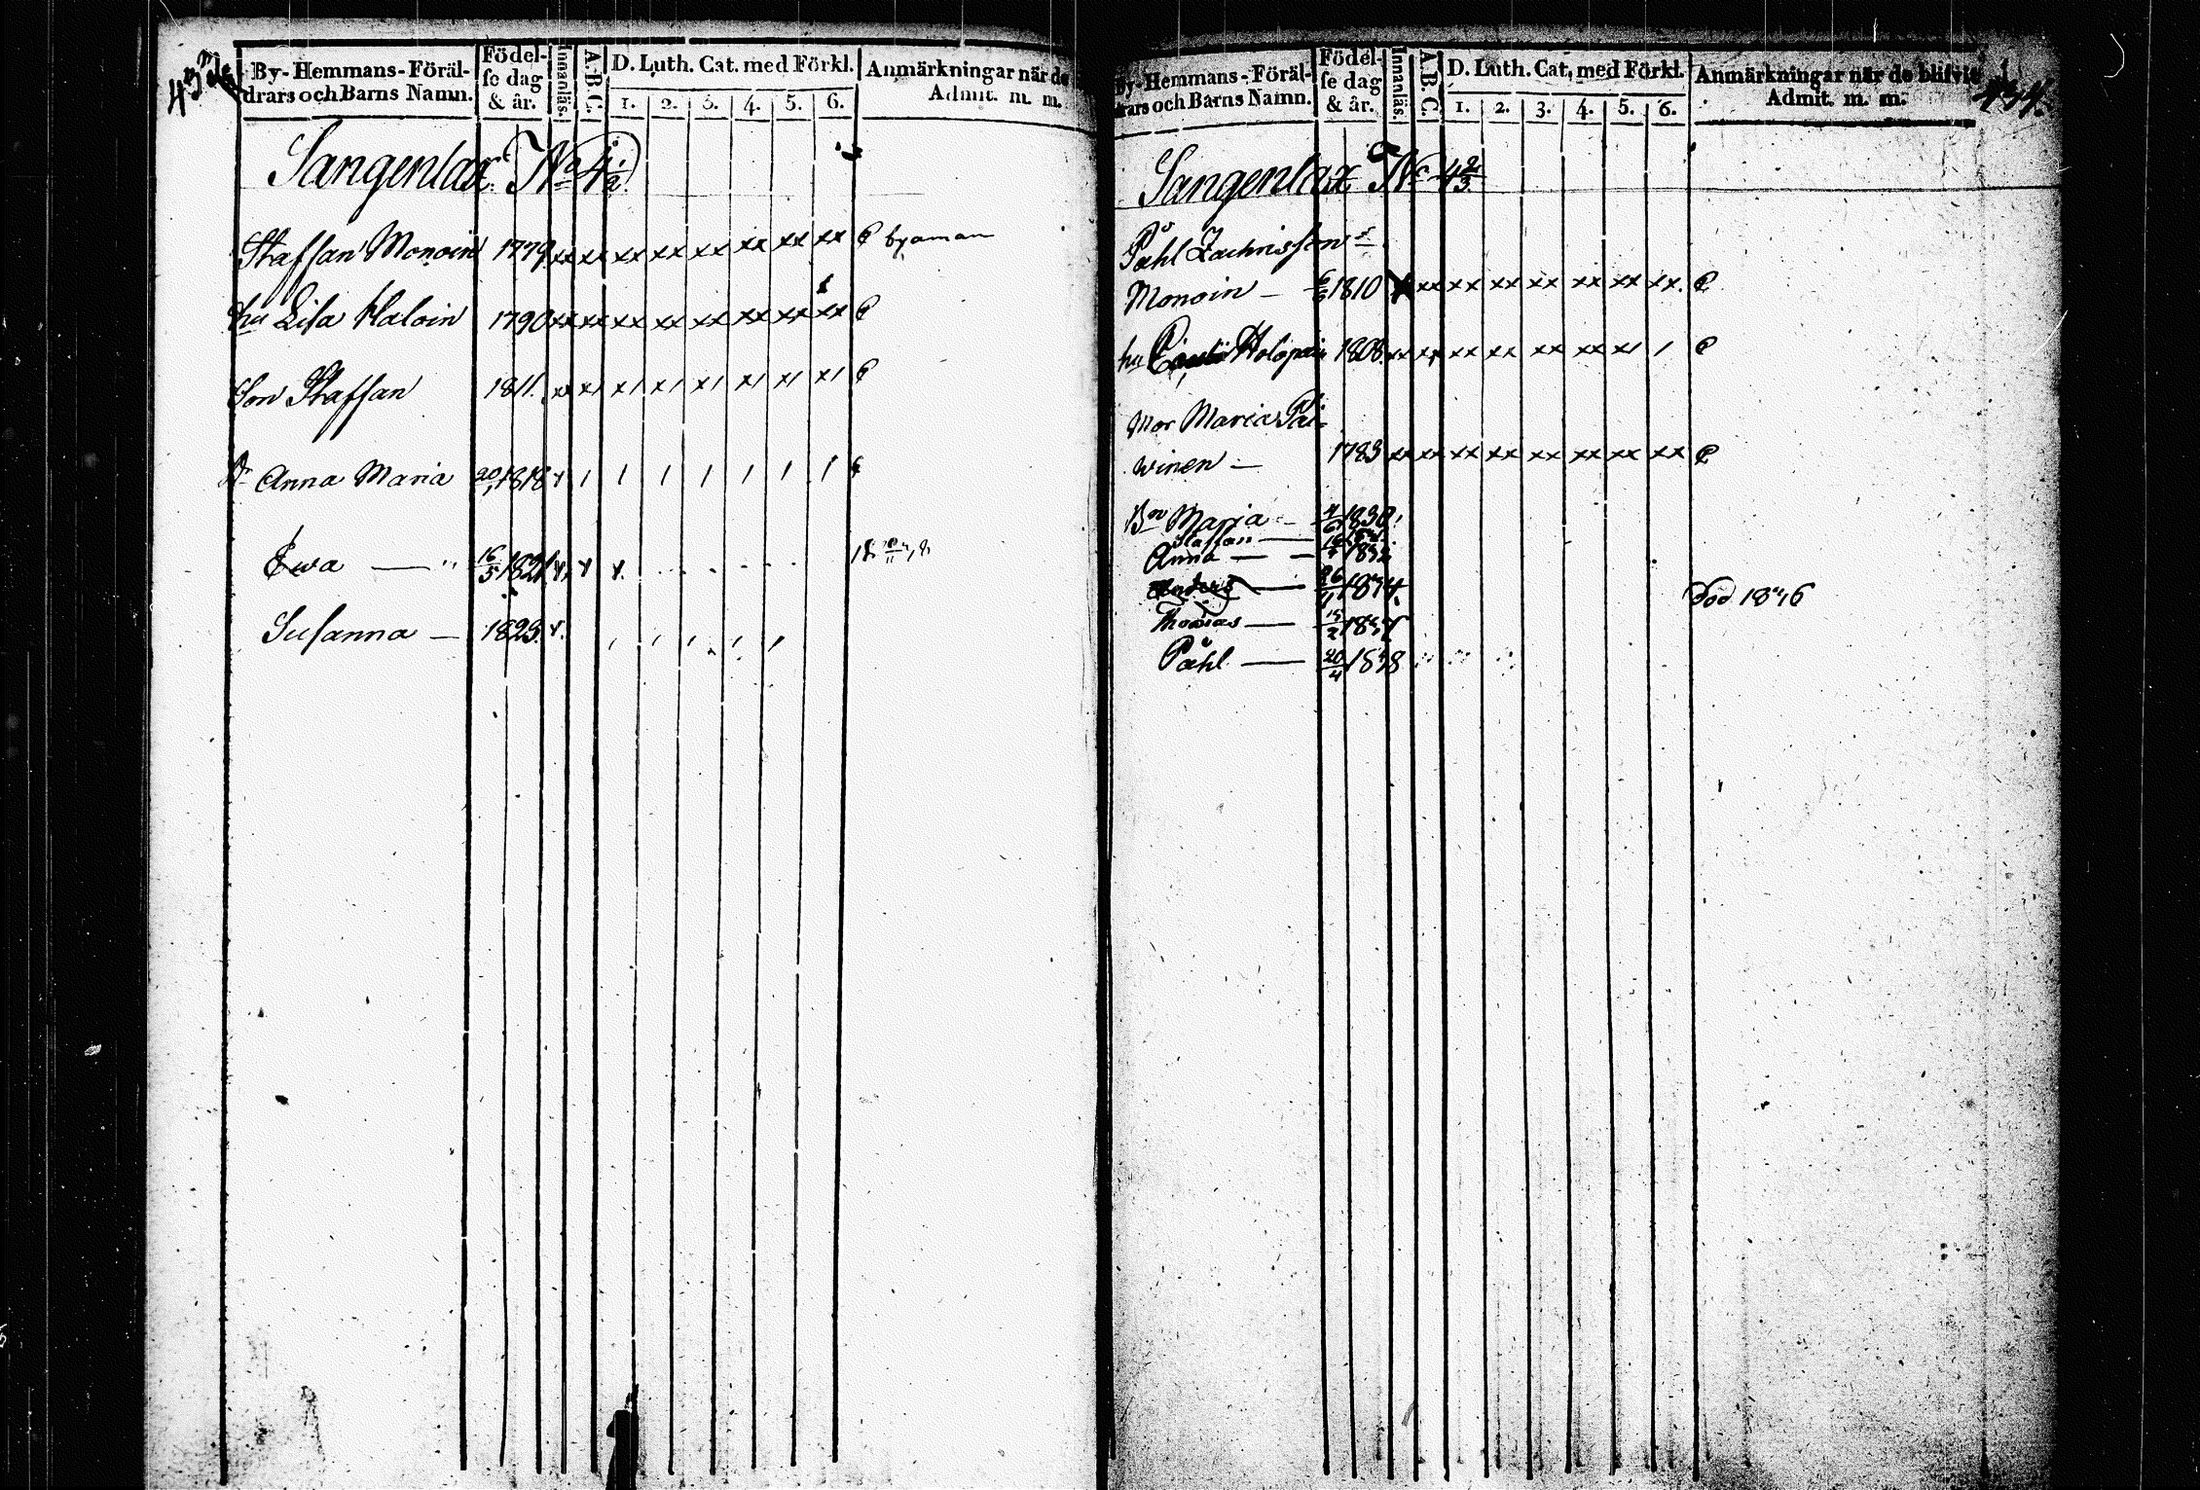 433
By-Hemmans-Föräl-
drars och Barns Namn.
Födel-
se dag
& år.
Innanläs.
A.B.C.
D. Luth. Cat. med Förkl.
1. 2. 3. 4. 5. 6.
Anmärkningar när de
Admit. m. m.
Sangenlax No 4 1/2
Staffan Monoin 1779 xx xx xx xx xx xx xx xx byaman
hu Lisa Haloin 1790 xx xx xx xx xx xx xx xx
Son Staffan 1811. xx x1 x1 x1 x1 x1 x1 x1
Dr Anna Maria 20/1 1818
Ewa — " 16/5 1821
Susanna — 1823
434.
By-Hemmans-Föräl-
drars och Barns Namn.
Födel-
se dag
& år.
Innanläs.
A.B.C.
D. Luth. Cat. med Förkl.
1. 2. 3. 4. 5. 6.
Anmärkningar när de blifvit
Admit. m. m.
Sangenlax No 4 2/3
Påhl Zachrisson
Monoin — 1810 xx xx xx xx xx xx xx
hu Holopain 1808. xx xx xx xx xx xx x1 1
Mor Maria Päi-
winen — 1783 xx xx xx xx xx xx xx xx
Bn Maria — 1830
Staffan —
Anna —
Anders — 26/11 1834 död 1836
Thomas —
Påhl — 20/4 1838